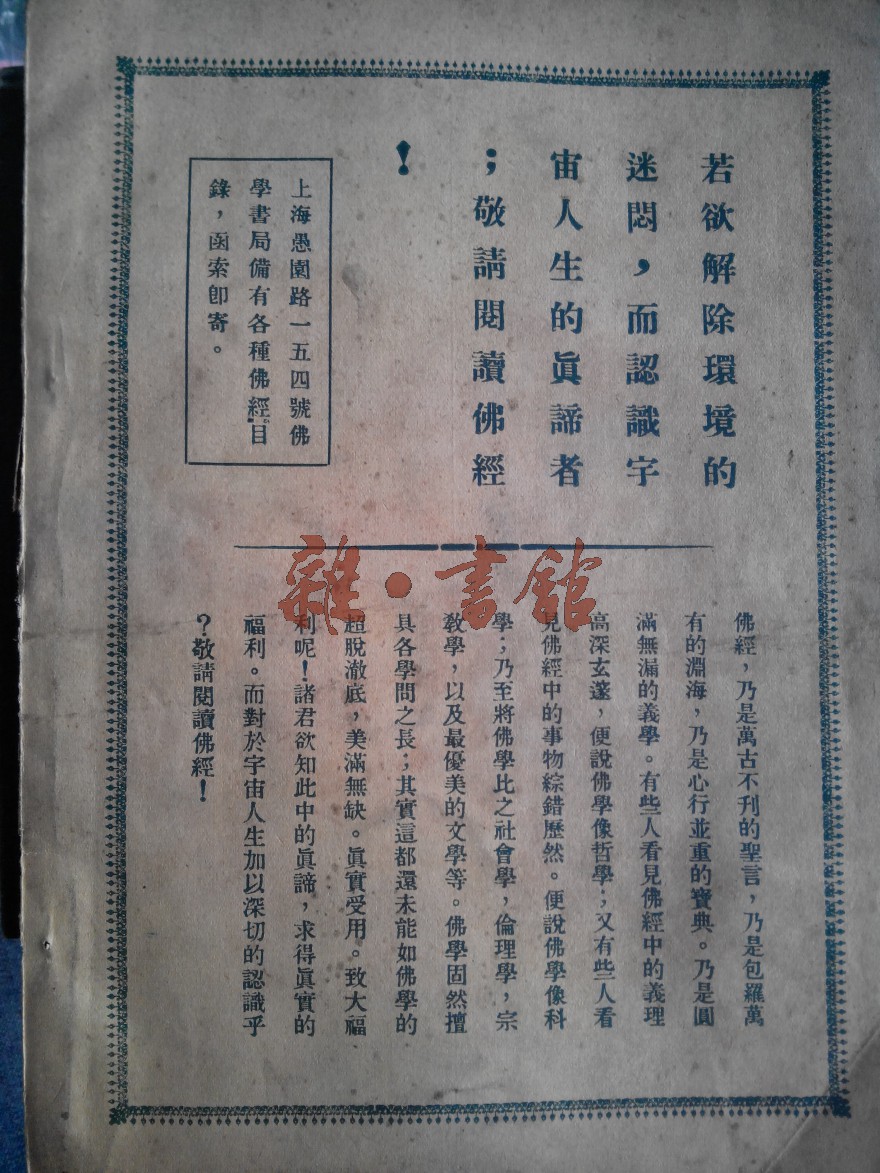 若欲解除環境的
迷悶，而認識宇
宙人生的眞諦者
；敬請閱讀佛經
！
上海愚園路一五四號佛
學書局備有各種佛經目
錄，函索卽寄。
雜·書館
佛經，乃是萬古不刋的聖言，乃是包羅萬
有的淵海，乃是心行並重的寶典。乃是圓
滿無漏的義學。有些人看見佛經中的義理
高深玄邃，便說佛學像哲學；又有些人看
見佛經中的事物綜錯歷然。便說佛學像科
學；乃至將佛學比之社會學，倫理學，宗
敎學，以及最優美的文學等。佛學固然擅
具各學問之長；其實這都還未能如佛學的
超脫澈底，美滿無缺。眞實受用。致大福
利呢！諸君欲知此中的眞諦，求得眞實的
福利。而對於宇宙人生加以深切的認識乎
？敬請閱讀佛經！